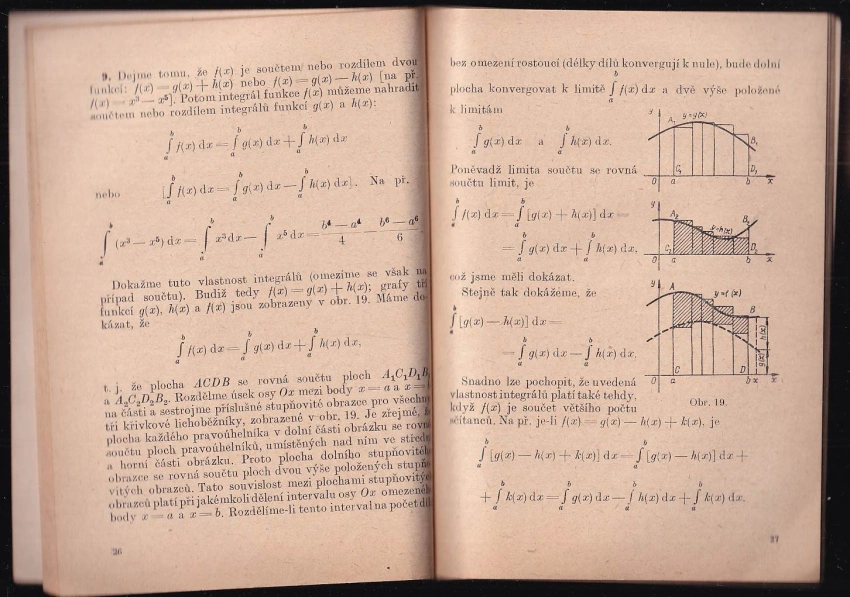 9. Dejme tomu, že f(x) je součtem nebo rozdílem dvou
funkcí: f(x) = g(x) + h(x) nebo f(x) = g(x) — h(x) [na př.
f(x) = x³ — x⁵]. Potom integrál funkce f(x) můžeme nahradit
součtem nebo rozdílem integrálů funkcí g(x) a h(x):
∫ₐᵇ f(x) dx = ∫ₐᵇ g(x) dx + ∫ₐᵇ h(x) dx
nebo [∫ₐᵇ f(x) dx = ∫ₐᵇ g(x) dx — ∫ₐᵇ h(x) dx]. Na př.
∫ₐᵇ (x³ — x⁵) dx = ∫ₐᵇ x³ dx — ∫ₐᵇ x⁵ dx = (b⁴ — a⁴)/4 — (b⁶ — a⁶)/6.
Dokažme tuto vlastnost integrálů (omezíme se však na
případ součtu). Budiž tedy f(x) = g(x) + h(x); grafy tří
funkcí g(x), h(x) a f(x) jsou zobrazeny v obr. 19. Máme do-
kázat, že
∫ₐᵇ f(x) dx = ∫ₐᵇ g(x) dx + ∫ₐᵇ h(x) dx,
t. j. že plocha ACDB se rovná součtu ploch A₁C₁D₁B₁
a A₂C₂D₂B₂. Rozdělme úsek osy Ox mezi body x = a a x =
na části a sestrojme příslušné stupňovité obrazce pro všechny
tři křivkové lichoběžníky, zobrazené v obr. 19. Je zřejmé, že
plocha každého pravoúhelníka v dolní části obrázku se rovná
součtu ploch pravoúhelníků, umístěných nad ním ve středu
a horní části obrázku. Proto plocha dolního stupňovitého
obrazce se rovná součtu ploch dvou výše položených stupňo-
vitých obrazců. Tato souvislost mezi plochami stupňovitých
obrazců platí při jakémkoli dělení intervalu osy Ox omezeného
body x = a a x = b. Rozdělíme-li tento interval na počet dílů
26
bez omezení rostoucí (délky dílů konvergují k nule), bude dolní
plocha konvergovat k limitě ∫ₐᵇ f(x) dx a dvě výše položené
k limitám
∫ₐᵇ g(x) dx a ∫ₐᵇ h(x) dx.
Poněvadž limita součtu se rovná
součtu limit, je
∫ₐᵇ f(x) dx = ∫ₐᵇ [g(x) + h(x)] dx =
= ∫ₐᵇ g(x) dx + ∫ₐᵇ h(x) dx,
což jsme měli dokázat.
Stejně tak dokážeme, že
∫ₐᵇ [g(x) — h(x)] dx =
= ∫ₐᵇ g(x) dx — ∫ₐᵇ h(x) dx.
Snadno lze pochopit, že uvedená
vlastnost integrálů platí také tehdy,
když f(x) je součet většího počtu
sčítanců. Na př. je-li f(x) = g(x) — h(x) + k(x), je
∫ₐᵇ [g(x) — h(x) + k(x)] dx = ∫ₐᵇ [g(x) — h(x)] dx +
+ ∫ₐᵇ k(x) dx = ∫ₐᵇ g(x) dx — ∫ₐᵇ h(x) dx + ∫ₐᵇ k(x) dx.
y A₁ y=g(x) B₁
C₁ D₁
0 a b x
y A₂ y=h(x) B₂
C₂ D₂
0 a b x
y A y=f(x) B
h(x)
g(x)
C D
0 a b x x
Obr. 19.
27